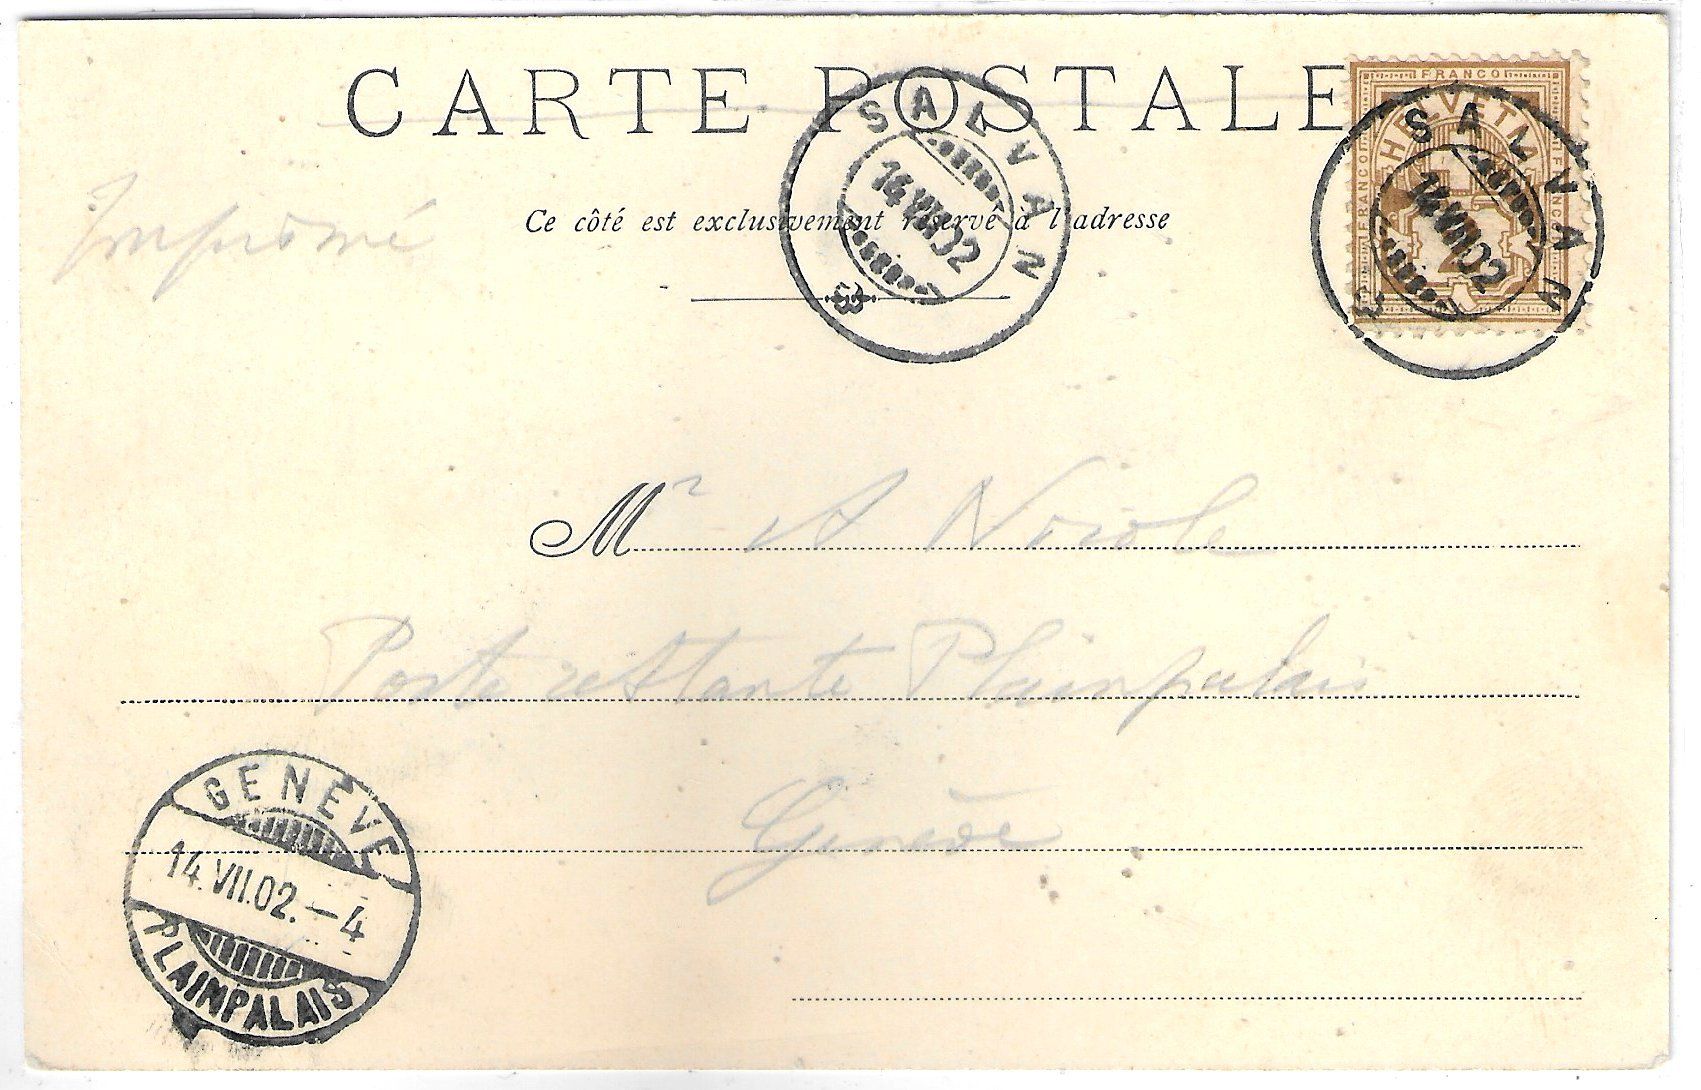 CARTE POSTALE
FRANCO
HELVETIA
FRANCO
FRANCO
2
SALVAN
14.VII.02
SALVAN
14.VII.02
Imprimé
Ce côté est exclusivement réservé à l'adresse
Mr A Nicole
Poste restante Plainpalais
Genève
GENÈVE
14.VII.02.—4
PLAINPALAIS